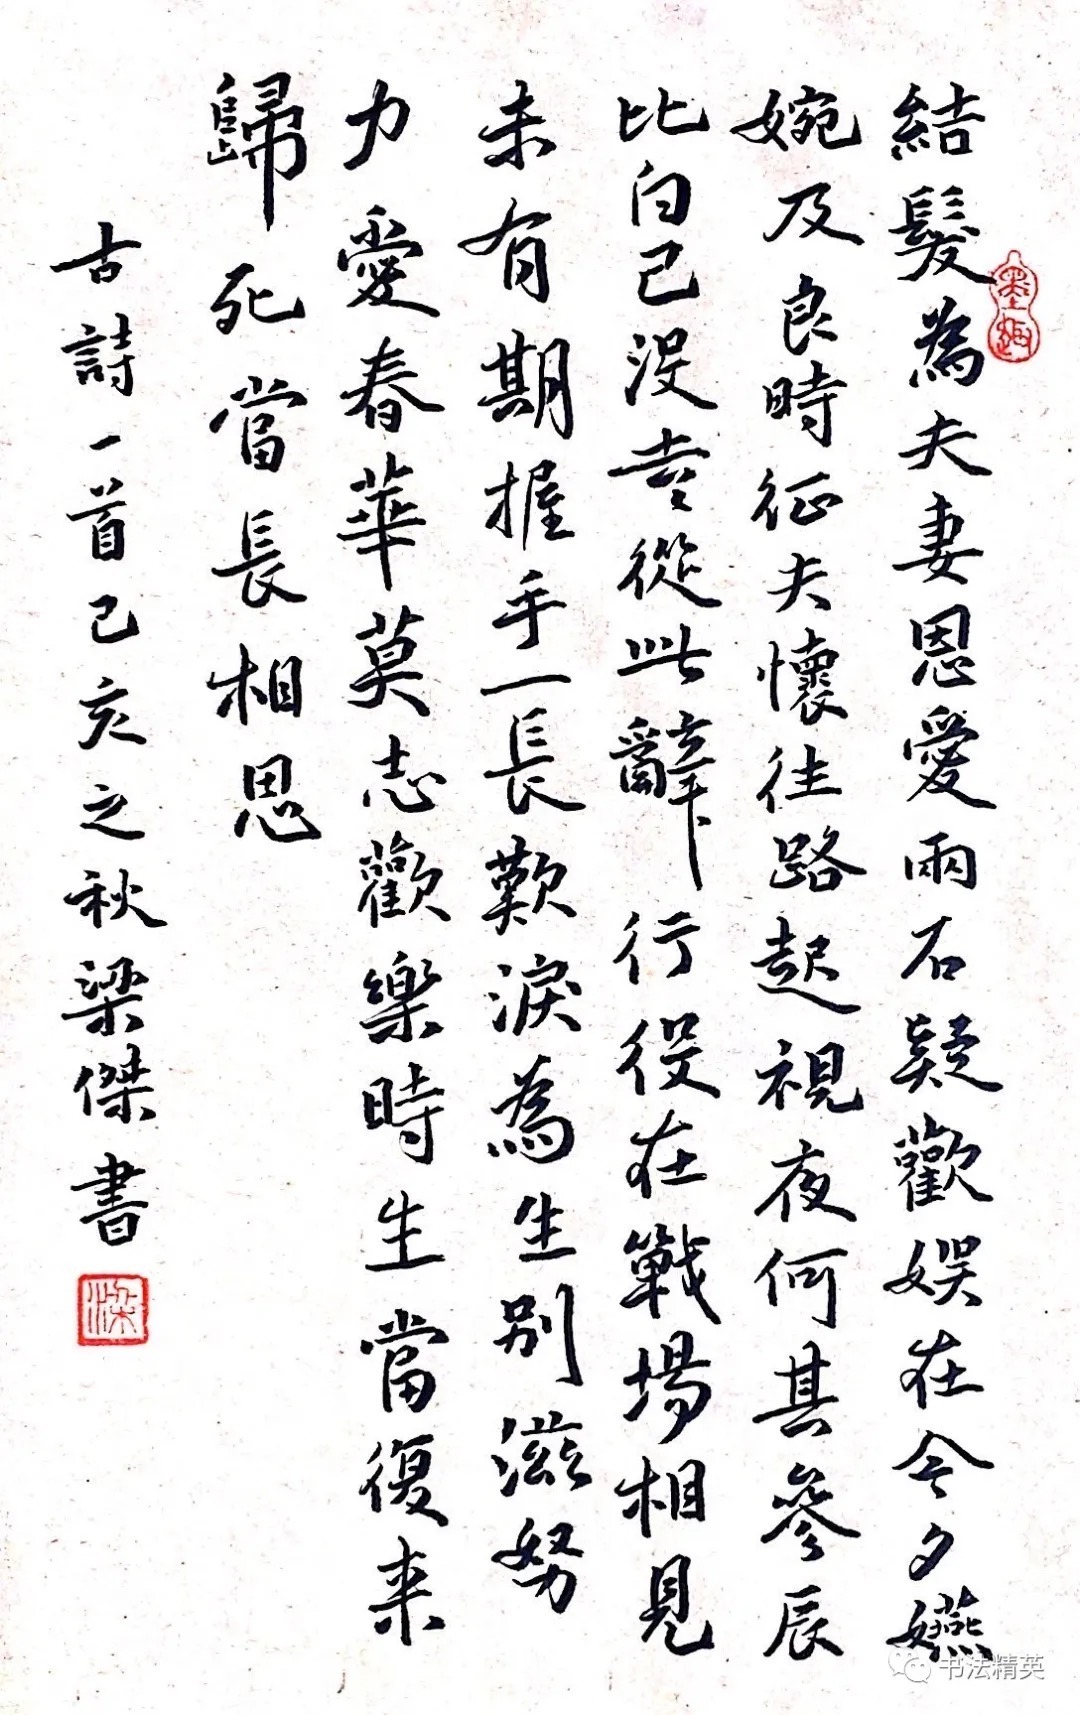 結髮為夫妻恩愛兩石疑歡娛在今夕嬿
婉及良時征夫懷往路起視夜何其參辰
皆已没去々從此辭行役在戰場相見
未有期握手一長歎淚為生别滋努
力愛春華莫志歡樂時生當復来
歸死當長相思
古詩一首己亥之秋梁傑書
墨趣
梁
书法精英